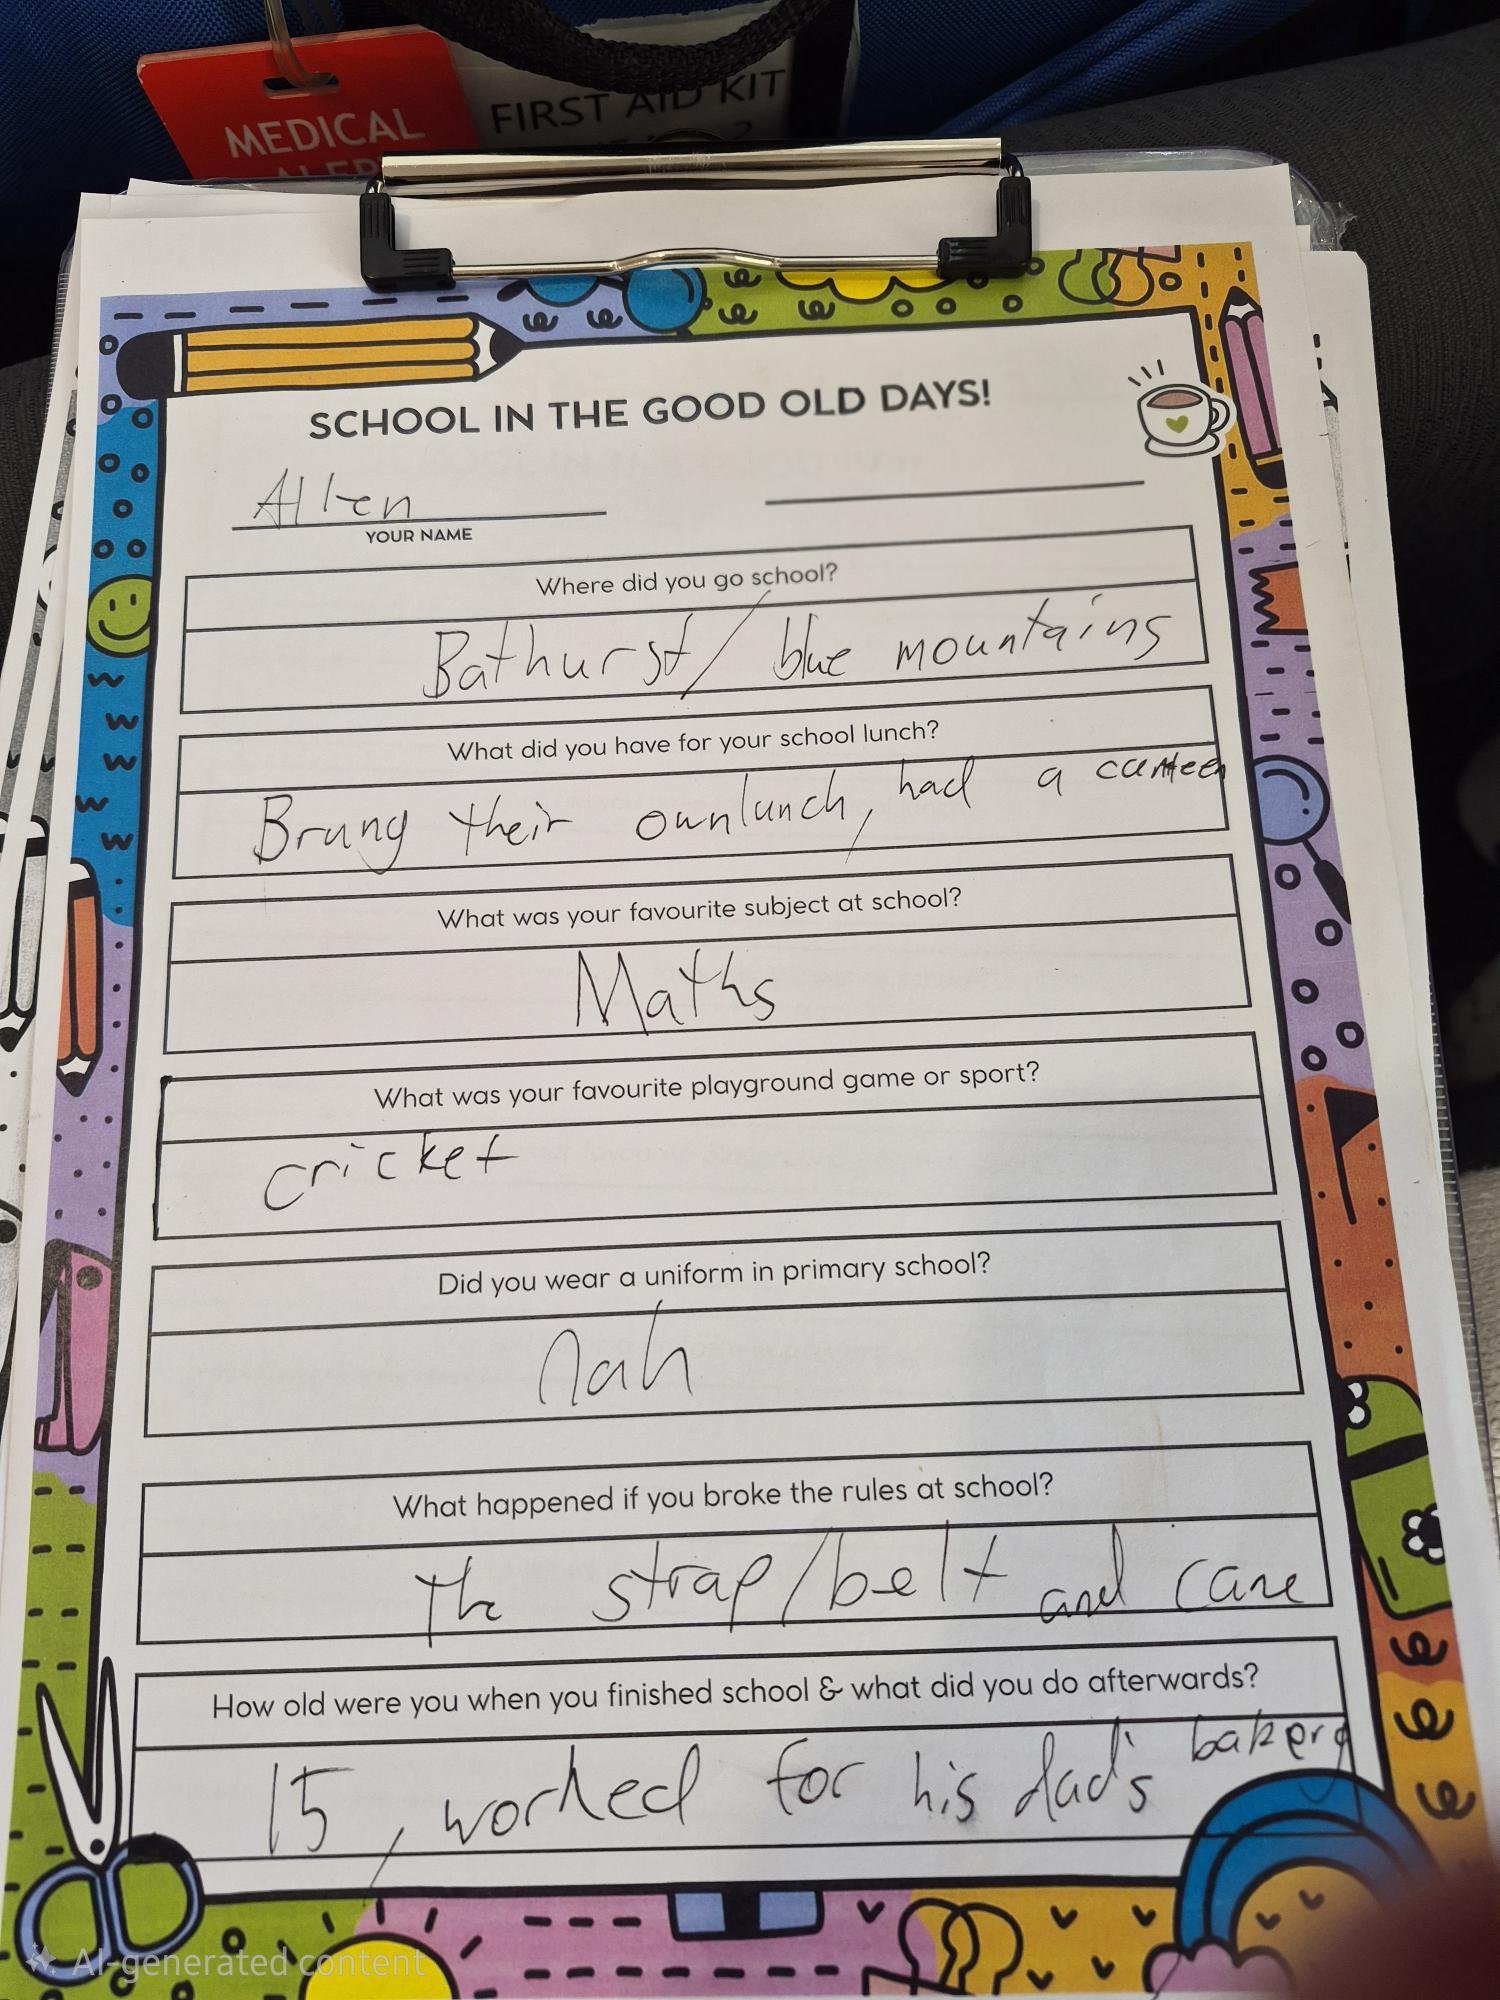 MEDICAL
ALERT
FIRST AID KIT
SCHOOL IN THE GOOD OLD DAYS!
Allen
YOUR NAME
Where did you go school?
Bathurst / blue mountains
What did you have for your school lunch?
Brung their own lunch, had a canteen
What was your favourite subject at school?
Maths
What was your favourite playground game or sport?
cricket
Did you wear a uniform in primary school?
nah
What happened if you broke the rules at school?
the strap/belt and cane
How old were you when you finished school & what did you do afterwards?
15, worked for his dad's bakery
AI-generated content